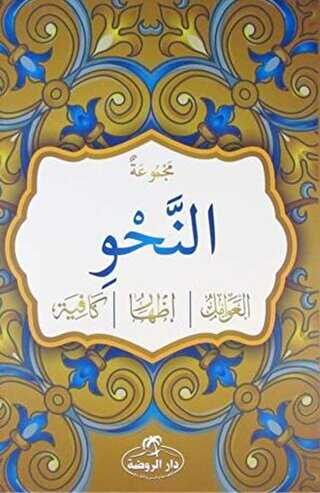 مَجْمُوعَةٌ
النَّحْوِ
العَوَامِلُ | إِظْهَارُ | كَافِيَة
دار الروضة